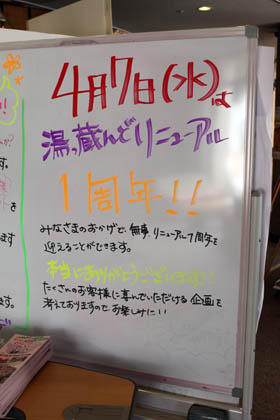 4月7日(水)は
湯〜蔵んどリニューアル
1周年!!
みなさまのおかげで、無事、リニューアル1周年を
迎えることができます。
本当にありがとうございます!
たくさんのお客様に喜んでいただける企画を
考えておりますので、お楽しみに!!